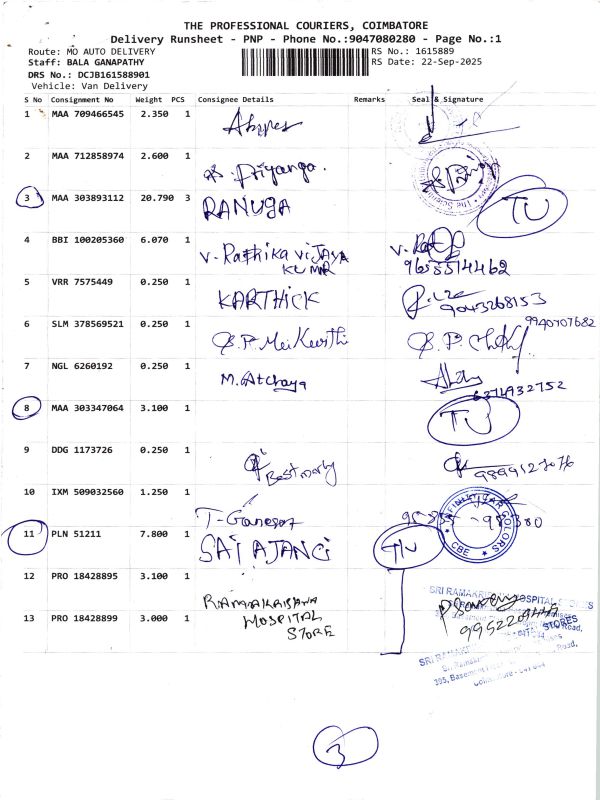 THE PROFESSIONAL COURIERS, COIMBATORE
Delivery Runsheet - PNP - Phone No.:9047080280 - Page No.:1
Route: MO AUTO DELIVERY RS No.: 1615889
Staff: BALA GANAPATHY RS Date: 22-Sep-2025
DRS No.: DCJB161588901
Vehicle: Van Delivery
S No Consignment No Weight PCS Consignee Details Remarks Seal & Signature
1 MAA 709466545 2.350 1
2 MAA 712858974 2.600 1 Priyanga.
3 MAA 303893112 20.790 3 RANUGA TU
4 BBI 100205360 6.070 1 V. Rathika VIJAYA
KUMAR 9655514462
5 VRR 7575449 0.250 1 KARTHICK 9043268153
6 SLM 378569521 0.250 1 S.P. Mei Keerthi 9940707682
7 NGL 6260192 0.250 1 M. Atchaya 6374932752
8 MAA 303347064 3.100 1 TU
9 DDG 1173726 0.250 1 9899127076
10 IXM 509032560 1.250 1 T. Ganesan
11 PLN 51211 7.800 1 SAI AJANCI TU
COLORS
CBE
12 PRO 18428895 3.100 1 RAMAKRISHNA
HOSPITAL
STORE
13 PRO 18428899 3.000 1
SRI RAMAKRISHNA HOSPITAL STORES
3